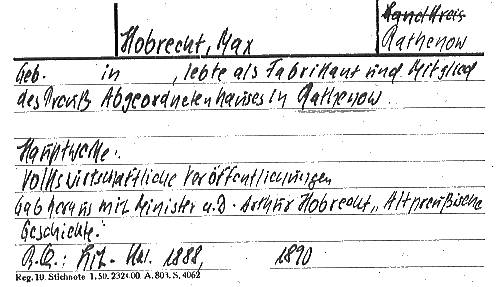 Landkreis
Hobrecht, Max
Rathenow
Geb. in , lebte als Fabrikant und Mitglied
des Preuß Abgeordnetenhauses in Rathenow.
Hauptwerke:
Volkswirtschaftliche Veröffentlichungen
Gab heraus mit Minister a.D. Arthur Hobrecht „Altpreußische
Geschichte."
R.Q.: Lit. Kal. 1888, 1890
Reg. 10. Stichnote 1. 50. 2324 00. A. 803. S. 4062